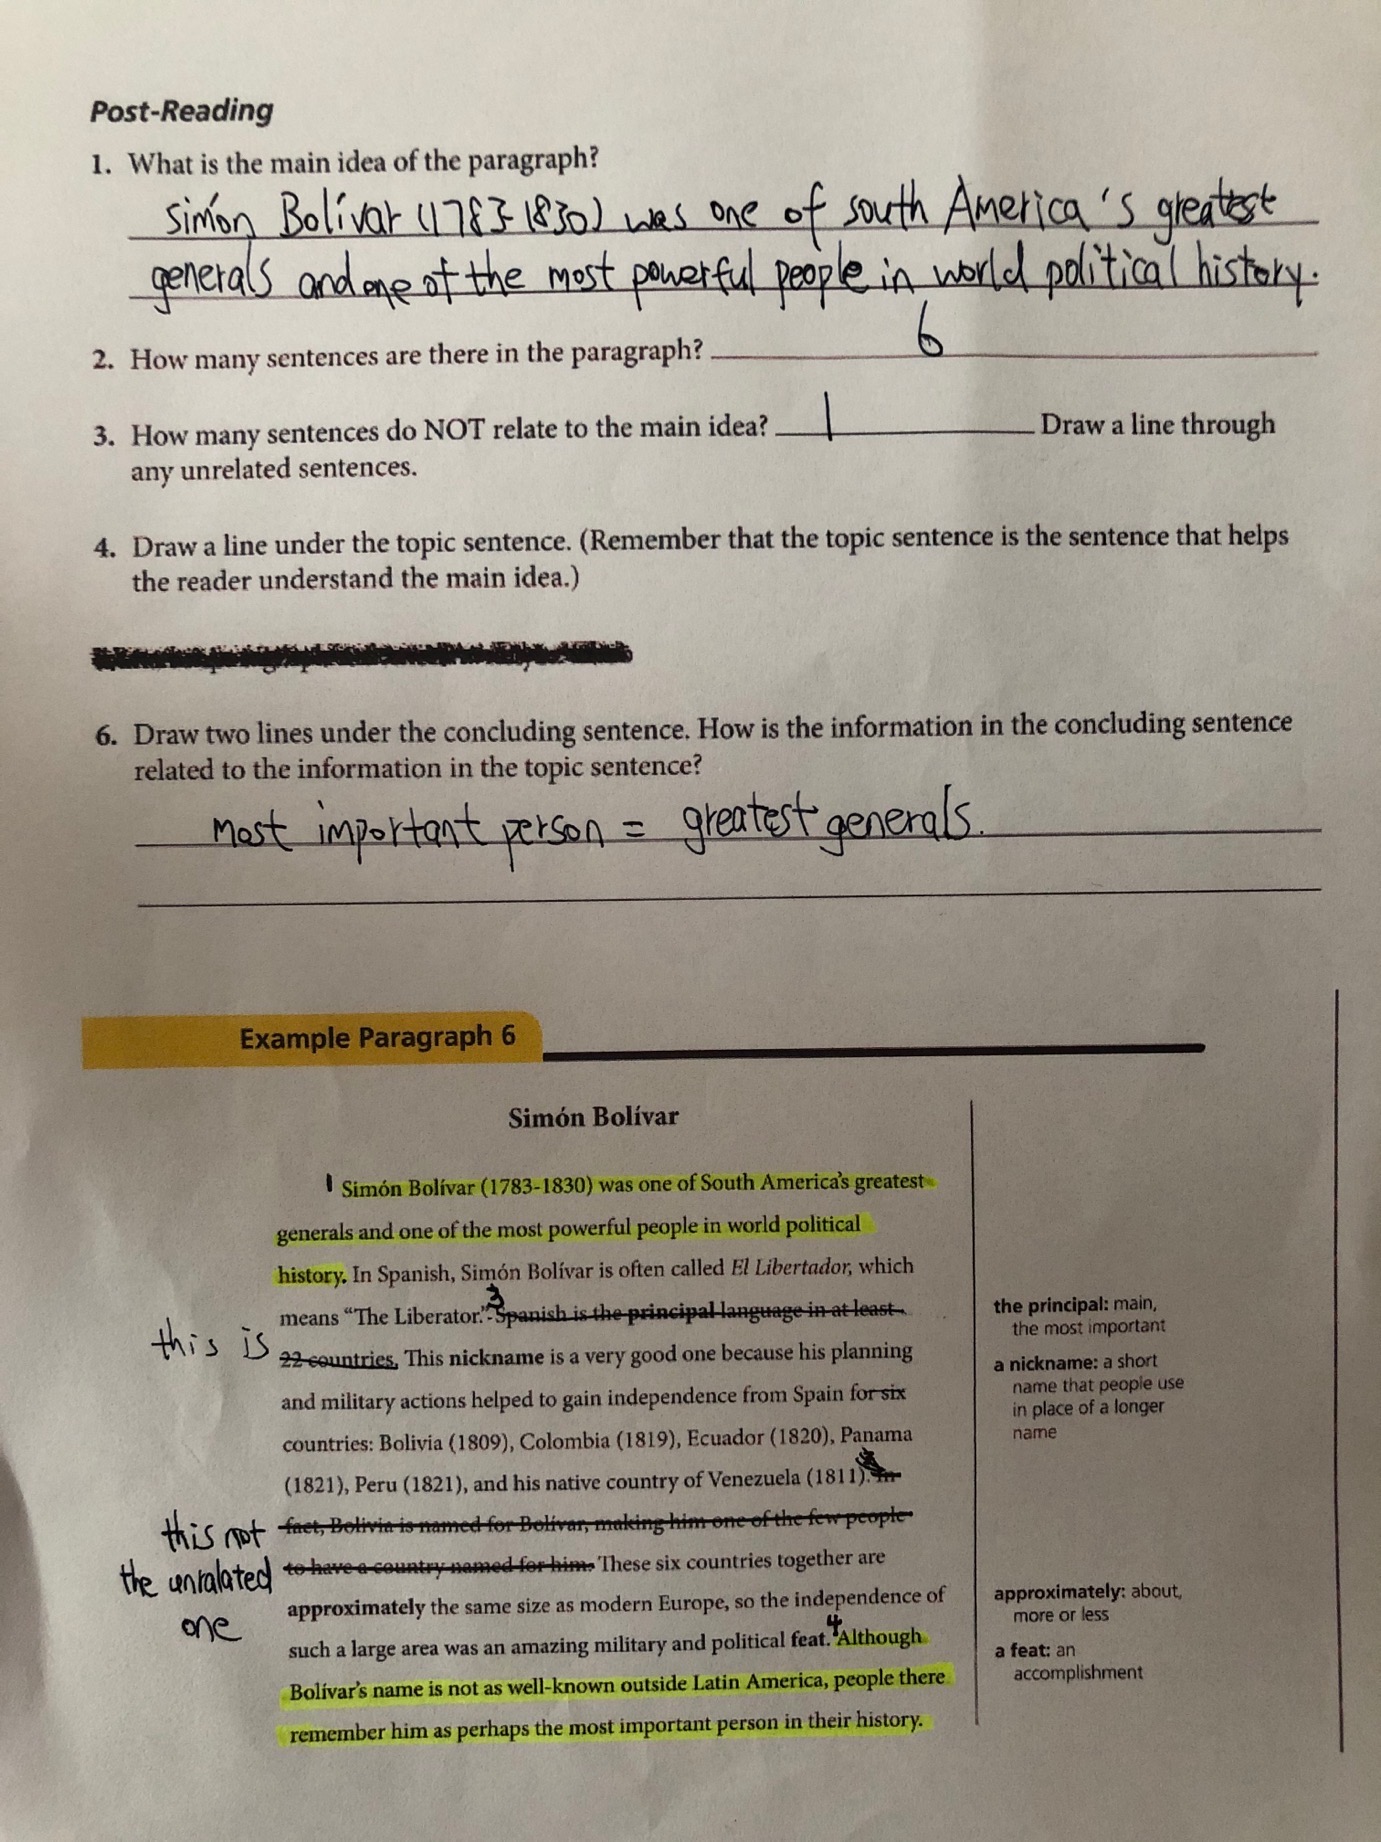 Post-Reading
1. What is the main idea of the paragraph?
Simón Bolívar (1783-1830) was one of south America's greatest
generals and one of the most powerful people in world political history.
2. How many sentences are there in the paragraph? 6
3. How many sentences do NOT relate to the main idea? 1 Draw a line through
any unrelated sentences.
4. Draw a line under the topic sentence. (Remember that the topic sentence is the sentence that helps
the reader understand the main idea.)
6. Draw two lines under the concluding sentence. How is the information in the concluding sentence
related to the information in the topic sentence?
most important person = greatest generals.
Example Paragraph 6
Simón Bolívar
1 Simón Bolívar (1783-1830) was one of South America's greatest
generals and one of the most powerful people in world political
history. In Spanish, Simón Bolívar is often called El Libertador, which
means "The Liberator." 3 Spanish is the principal language in at least
22 countries. This nickname is a very good one because his planning
this is
and military actions helped to gain independence from Spain for six
countries: Bolivia (1809), Colombia (1819), Ecuador (1820), Panama
(1821), Peru (1821), and his native country of Venezuela (1811). In
fact, Bolivia is named for Bolívar, making him one of the few people
to have a country named for him. These six countries together are
this not
the unralated
one
approximately the same size as modern Europe, so the independence of
such a large area was an amazing military and political feat. 4 Although
Bolívar's name is not as well-known outside Latin America, people there
remember him as perhaps the most important person in their history.
the principal: main,
the most important
a nickname: a short
name that people use
in place of a longer
name
approximately: about,
more or less
a feat: an
accomplishment